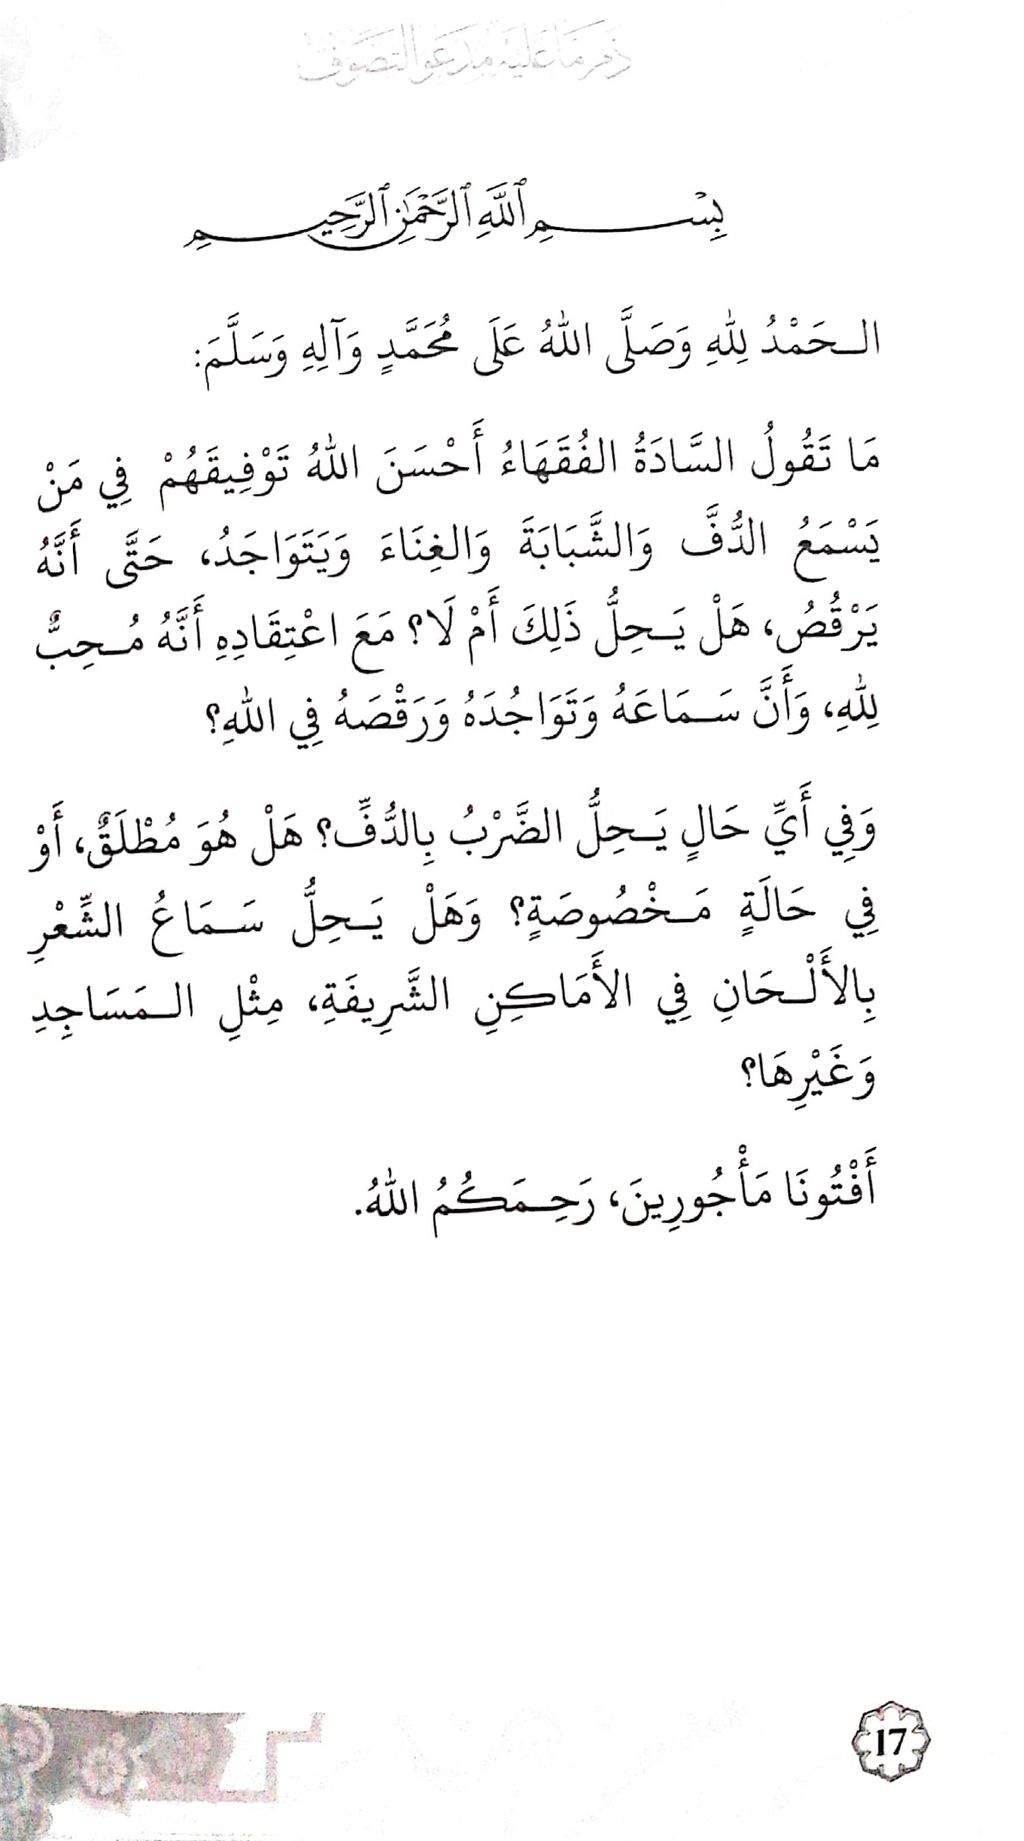 ذم ما عليه مدعو التصوف
بِسْمِ ٱللَّهِ ٱلرَّحْمَٰنِ ٱلرَّحِيمِ
الـحَمْدُ لِلهِ وَصَلَّى اللهُ عَلَى مُحَمَّدٍ وَآلِهِ وَسَلَّمَ:
مَا تَقُولُ السَّادَةُ الفُقَهَاءُ أَحْسَنَ اللهُ تَوْفِيقَهُمْ فِي مَنْ
يَسْمَعُ الدُّفَّ وَالشَّبَابَةَ وَالغِنَاءَ وَيَتَوَاجَدُ، حَتَّى أَنَّهُ
يَرْقُصُ، هَلْ يَـحِلُّ ذَلِكَ أَمْ لَا؟ مَعَ اعْتِقَادِهِ أَنَّهُ مُـحِبٌّ
لِلهِ، وَأَنَّ سَـمَاعَهُ وَتَوَاجُدَهُ وَرَقْصَهُ فِي اللهِ؟
وَفِي أَيِّ حَالٍ يَـحِلُّ الضَّرْبُ بِالدُّفِّ؟ هَلْ هُوَ مُطْلَقٌ، أَوْ
فِي حَالَةٍ مَـخْصُوصَةٍ؟ وَهَلْ يَـحِلُّ سَـمَاعُ الشِّعْرِ
بِالأَلْـحَانِ فِي الأَمَاكِنِ الشَّرِيفَةِ، مِثْلِ الـمَسَاجِدِ
وَغَيْرِهَا؟
أَفْتُونَا مَأْجُورِينَ، رَحِـمَكُمُ اللهُ.
17